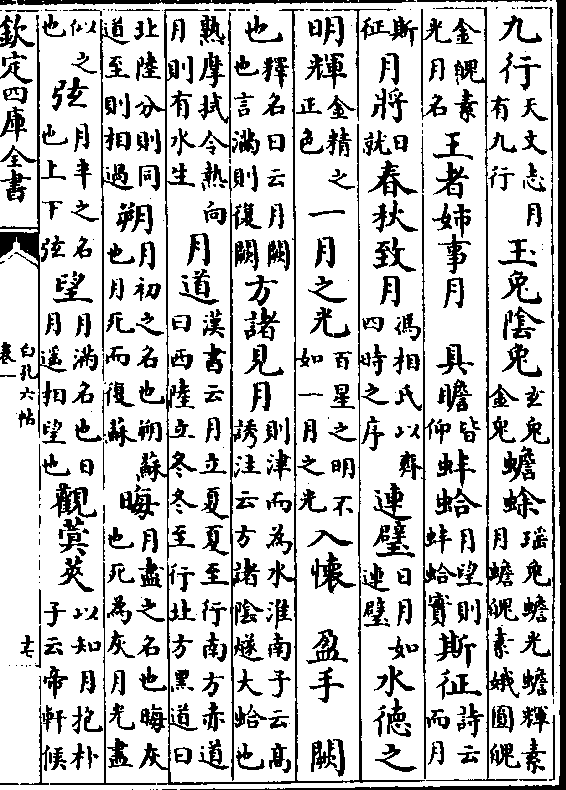 九行天文志月有九行玉兎陰兎玄兎金兎蟾蜍瑶兎蟾光蟾輝素月蟾魄素娥圓魄
金魄素光月名王者姊事月 具瞻皆仰蚌蛤月望則蚌蛤實斯征詩云而月
斯征月將日就春秋致月馮相氏以齊四時之序連璧日月如連璧水德之
明輝金精之正色一月之光百星之明不如一月之光入懷 盈手 闕
也釋名曰云月闕也言滿則復闕方諸見月則津而為水淮南子云高誘注云方諸陰燧大蛤也
熟摩拭令熱向月則有水生月道漢書云月立夏夏至行南方赤道曰西陸立冬冬至行北方黑道曰
北陸分則同道至則相過朔月初之名也朔蘇也月死而復蘇晦月盡之名也晦灰也死為灰月光盡
似之也弦月半之名也上下弦望月滿名也日月遥相望也觀蓂莢以知月抱朴子云帝軒候
欽定四庫全書
白孔六帖
卷一
十七